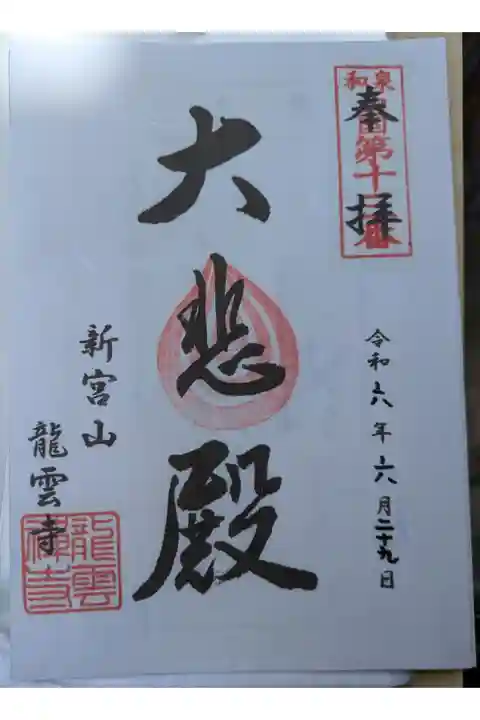 和泉
奉拝
第十
令和六年六月二十九日
大悲殿
新宮山
龍雲寺
龍雲
禅寺